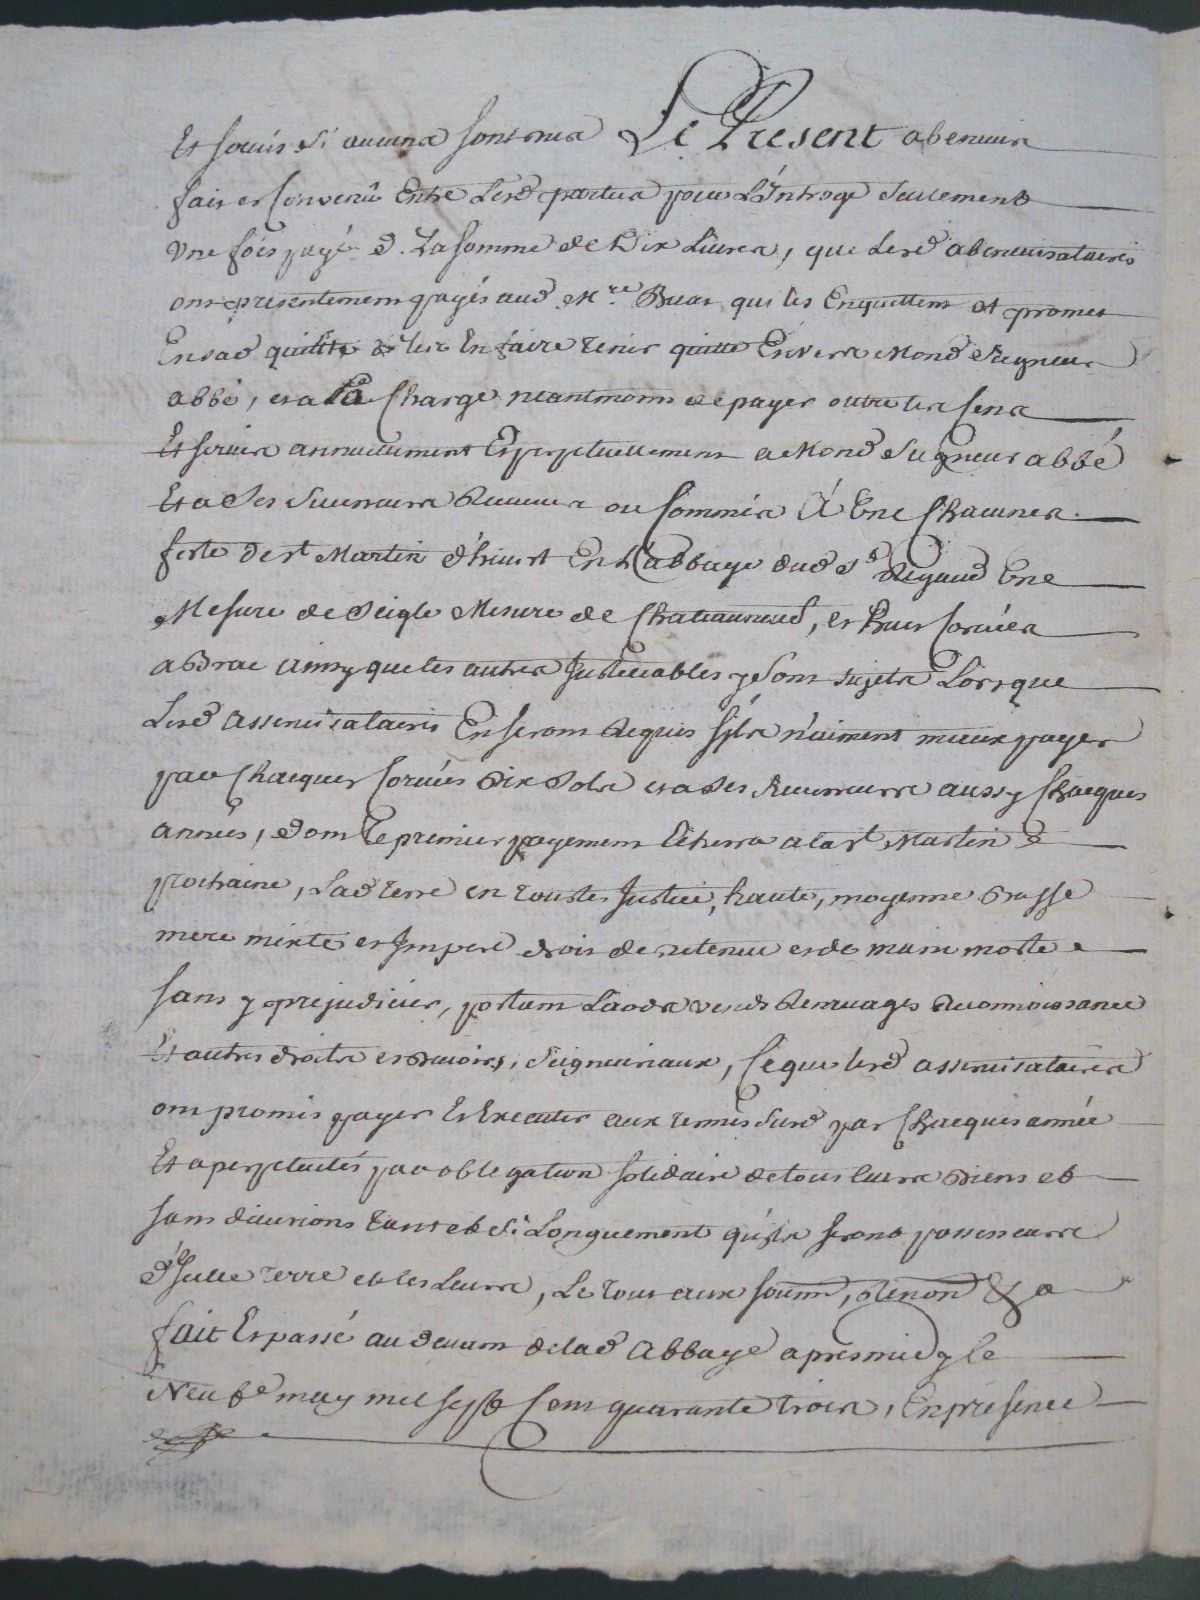 Et servis si aucuns sont mis Le Present abenevis
fait et Convenû Entre Lesd parties pour L'Introge Seulement
Une fois payé d. La somme de Dix Livres, que Lesd abenevisataires
ont presentement payés aud M.re Buat qui les Enquittent et promet
En sad quilité de les En faire tenir quitte Envers Mond Seigneur
abbé, et a la Charge neantmoins de payer outre les Cens
Et servis annuellement Et perpetuellement a Mond Seigneur abbé
Et a Ses Successeurs Recteurs ou Commis À Une Chacunes
feste de st Martin d'hivert En L'abbaye dud St Rigaud Une
Mesure de Seigle Mesure de Chateauneuf, et Deux Corvées
a Bras ainsy que les autres Justiciables y Sont sujets Lorsque
Lesd Assencisataires En seront Requis s'ils n'aiment mieux payer
par Chacques Corvées Dix Sols et a Ses Successeurs aussy Chacques
années, dont Le premier payement Echerra a la st Martin
prochaine, Lad terre en toutes Justice, haute, moyenne Basse
mere mixte et Impere droit de retenue et de main morte
sans y prejudicier, portant Laods vends Remuages Reconnoissance
Et autres droits et devoirs, Seigneuriaux, Ce que lesd assencisataires
ont promis payer Et Executer aux termes Susd par Chacques année
Et a perpetuités par obligation solidaire de tous leurs Biens et
sans divisions tant et Si Longuement qu'ils seront possesseurs
d'Jcelle terre et les Leurs, Le tout aux soumn, Renon &a
fait Et passé au devant de lad Abbaye apres midy le
Neufe may mil sept Cent quarante trois, En presence